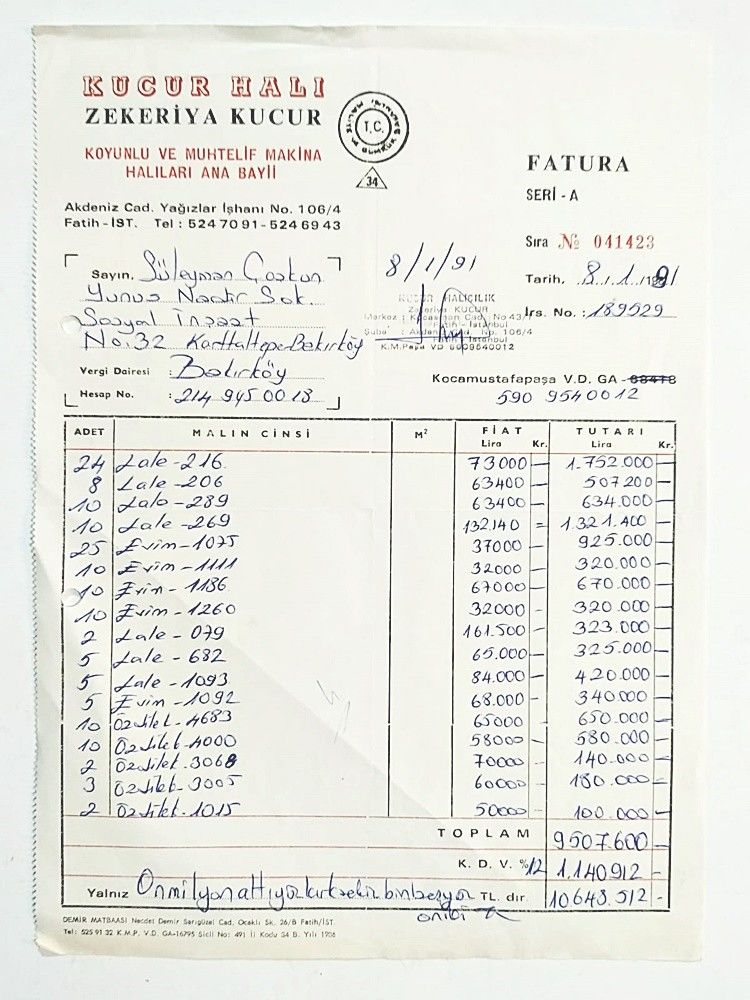 KUCUR HALI
ZEKERİYA KUCUR
KOYUNLU VE MUHTELİF MAKİNA
HALILARI ANA BAYİİ
Akdeniz Cad. Yağızlar İşhanı No. 106/4
Fatih - İST. Tel : 524 70 91 - 524 69 43
T.C.
34
FATURA
SERİ - A
Sıra № 041423
8/1/91
Tarih, 8.1.1991
İrs. No. : 189529
Sayın, Süleyman Coşkun
Yunus Nadir Sok.
Sosyal İnşaat
No: 32 Kartaltepe-Bakırköy
Vergi Dairesi : Bakırköy
Hesap No. : 214 945 00 13
KUCUR HALICILIK
Zekeriya KUCUR
Fatih - İstanbul
K.M.Paşa VD 5909540012
Kocamustafapaşa V.D. GA - 68418
590 9540012
ADET MALIN CİNSİ M² FİAT Lira Kr. TUTARI Lira Kr.
24 Lale - 216 73000 — 1.752.000 —
8 Lale - 206 63400 — 507200 —
10 Lale - 289 63400 — 634.000 —
10 Lale - 269 132.140 = 1.321.400 —
25 Evim - 1075 37000 — 925.000 —
10 Evim - 1111 32000 — 320.000 —
10 Evim - 1186 67000 — 670.000 —
10 Evim - 1260 32000 - 320.000 —
2 Lale - 079 161.500 — 323.000 —
5 Lale - 682 65.000 — 325.000 —
5 Lale - 1093 84.000 — 420.000 —
5 Evim - 1092 68.000 — 340000 —
10 Özdilek - 4683 65000 - 650.000 —
10 Özdilek - 4000 58000 - 580.000 —
2 Özdilek - 3068 70000 - 140.000 —
3 Özdilek - 3005 60000 - 180.000 —
2 Özdilek - 1015 50000 - 100.000 —
TOPLAM 9507.600 —
K. D. V. %12 1.140.912 —
Yalnız Onmilyonaltıyüzkırksekizbinbeşyüz TL. dır. 10648.512 —
oniki
DEMİR MATBAASI Necdet Demir Sarıgüzel Cad. Ocaklı Sk. 26/B Fatih/İST.
Tel: 525 91 32 K.M.P. V.D. GA-16795 Sicil No: 491 İl Kodu 34 B. Yılı 1986